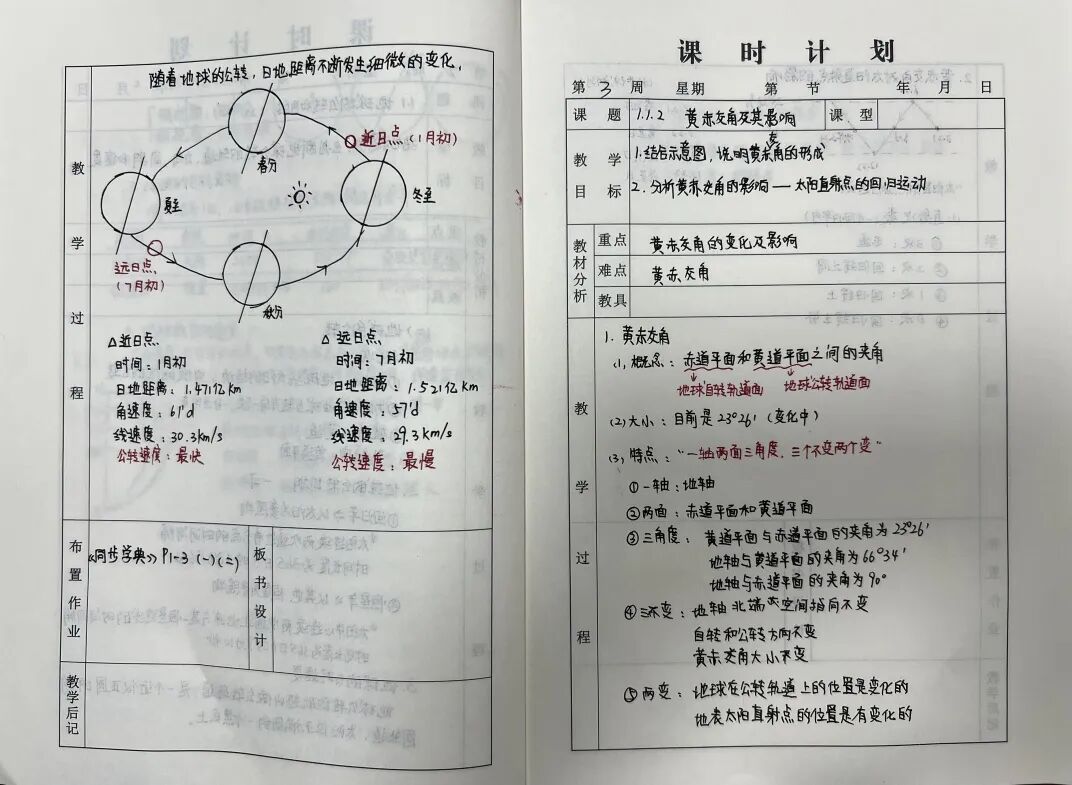 随着地球的公转，日地距离不断发生细微的变化，
近日点（1月初）
春分
夏至
冬至
远日点
（7月初）
秋分
教学过程
△近日点
时间：1月初
日地距离：1.471亿km
角速度：61'd
线速度：30.3km/s
公转速度：最快
△远日点
时间：7月初
日地距离：1.521亿km
角速度：57'd
线速度：29.3km/s
公转速度：最慢
布置作业
《同步字典》P1-3 (一)(二)
板书设计
教学后记
课时计划
第 3 周 星期 第 节 年 月 日
课题 1.1.2 黄赤交角及其影响 课型
教学目标
1.结合示意图，说明黄赤交角的形成
2.分析黄赤交角的影响——太阳直射点的回归运动
教材分析
重点 黄赤交角的变化及影响
难点 黄赤交角
教具
教学过程
1.黄赤交角
(1)概念：赤道平面和黄道平面之间的夹角
地球自转轨道面 地球公转轨道面
(2)大小：目前是23°26'（变化中）
(3)特点："一轴两面三角度，三个不变两个变"
①一轴：地轴
②两面：赤道平面和黄道平面
③三角度：黄道平面与赤道平面的夹角为23°26'
地轴与黄道平面的夹角为66°34'
地轴与赤道平面的夹角为90°
④三不变：地轴北端空间指向不变
自转和公转方向不变
黄赤交角大小不变
⑤两变：地球在公转轨道上的位置是变化的
地表太阳直射点的位置是有变化的